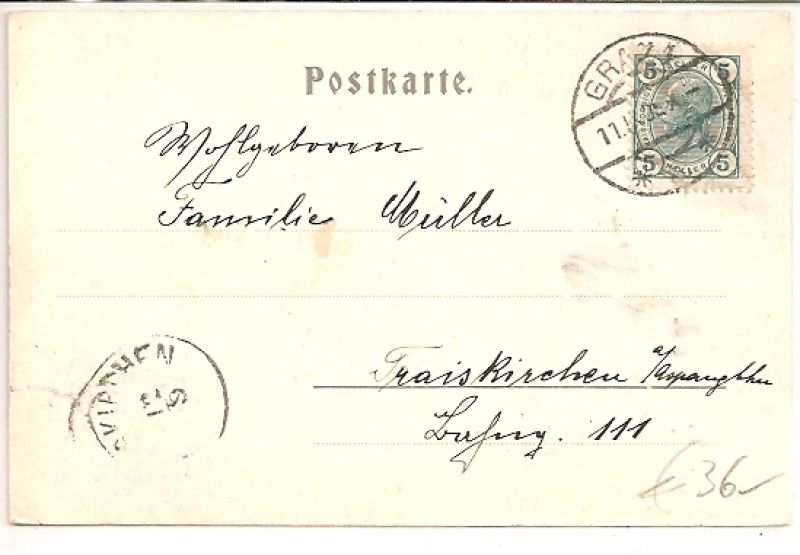 Postkarte.
GRAZ 1
11.
5 5
HELLER
5 5
HELLER
Wohlgeboren
Familie Müller
Traiskirchen a/Aspangbhn
111
KIRCHEN
€ 36-